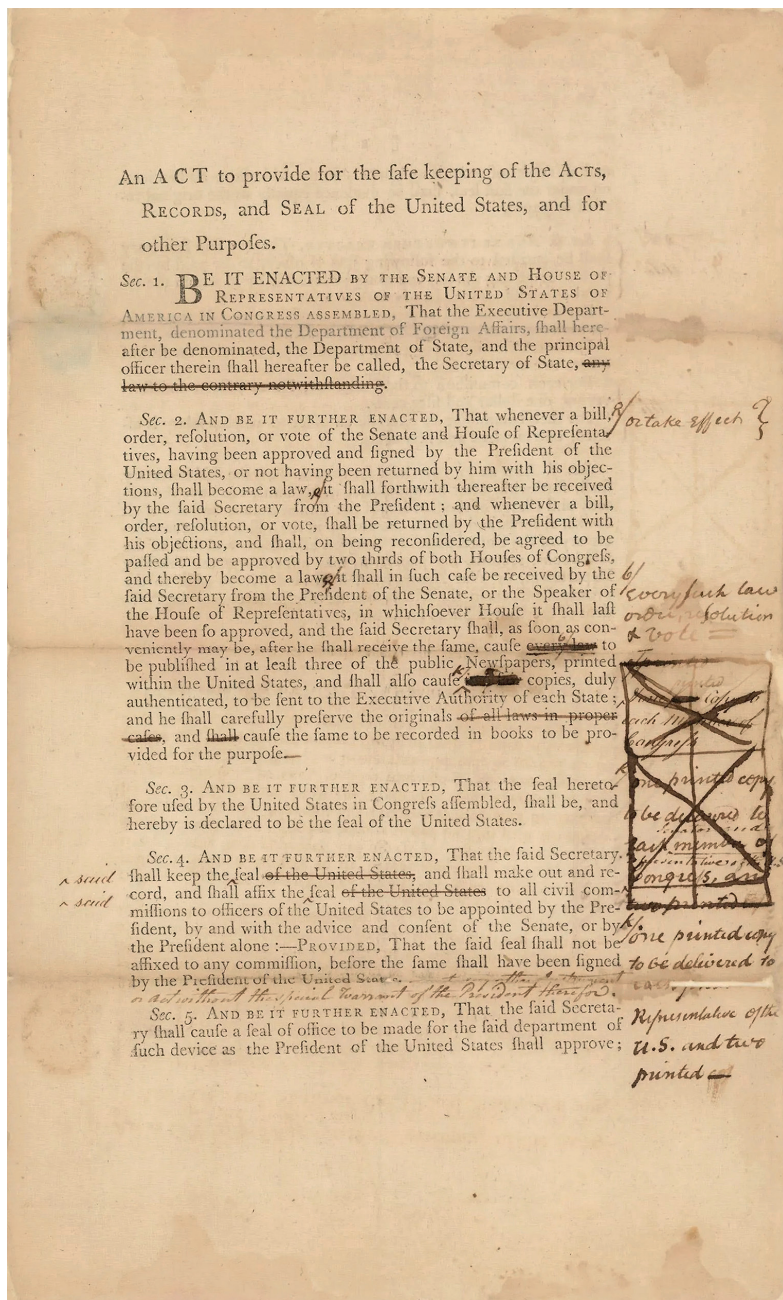 An ACT to provide for the ſafe keeping of the Acts,
Records, and Seal of the United States, and for
other Purpoſes.
Sec. 1. BE IT ENACTED BY THE SENATE AND HOUSE OF
REPRESENTATIVES OF THE UNITED STATES OF
AMERICA IN CONGRESS ASSEMBLED, That the Executive Depart-
ment, denominated the Department of Foreign Affairs, ſhall here-
after be denominated, the Department of State, and the principal
officer therein ſhall hereafter be called, the Secretary of State, any
law to the contrary notwithſtanding.
Sec. 2. AND BE IT FURTHER ENACTED, That whenever a bill,
order, reſolution, or vote of the Senate and Houſe of Repreſenta-
tives, having been approved and ſigned by the Preſident of the
United States, or not having been returned by him with his objec-
tions, ſhall become a law, it ſhall forthwith thereafter be received
by the ſaid Secretary from the Preſident; and whenever a bill,
order, reſolution, or vote, ſhall be returned by the Preſident with
his objections, and ſhall, on being reconſidered, be agreed to be
paſſed and be approved by two thirds of both Houſes of Congreſs,
and thereby become a law it ſhall in ſuch caſe be received by the
ſaid Secretary from the Preſident of the Senate, or the Speaker of
the Houſe of Repreſentatives, in whichſoever Houſe it ſhall laſt
have been ſo approved, and the ſaid Secretary ſhall, as ſoon as con-
veniently may be, after he ſhall receive the ſame, cauſe every law to
be publiſhed in at leaſt three of the public Newſpapers, printed
within the United States, and ſhall alſo cauſe copies, duly
authenticated, to be ſent to the Executive Authority of each State;
and he ſhall carefully preſerve the originals of all laws in proper
caſes, and ſhall cauſe the ſame to be recorded in books to be pro-
vided for the purpoſe.
or take effect
every such law
order, resolution
& vote
one printed copy
to be delivered to
each member of
Congress, and
two printed
Sec. 3. AND BE IT FURTHER ENACTED, That the ſeal hereto-
fore uſed by the United States in Congreſs aſſembled, ſhall be, and
hereby is declared to be the ſeal of the United States.
Sec. 4. AND BE IT FURTHER ENACTED, That the ſaid Secretary
ſhall keep the ſeal of the United States, and ſhall make out and re-
cord, and ſhall affix the ſeal of the United States to all civil com-
miſſions to officers of the United States to be appointed by the Pre-
ſident, by and with the advice and conſent of the Senate, or by
the Preſident alone:—PROVIDED, That the ſaid ſeal ſhall not be
affixed to any commiſſion, before the ſame ſhall have been ſigned
by the Preſident of the United States
or act without the special Warrant of the President therefor.
^ said
^ said
one printed copy
to be delivered to
Representative of the
U.S. and two
printed
Sec. 5. AND BE IT FURTHER ENACTED, That the ſaid Secreta-
ry ſhall cauſe a ſeal of office to be made for the ſaid department of
ſuch device as the Preſident of the United States ſhall approve;